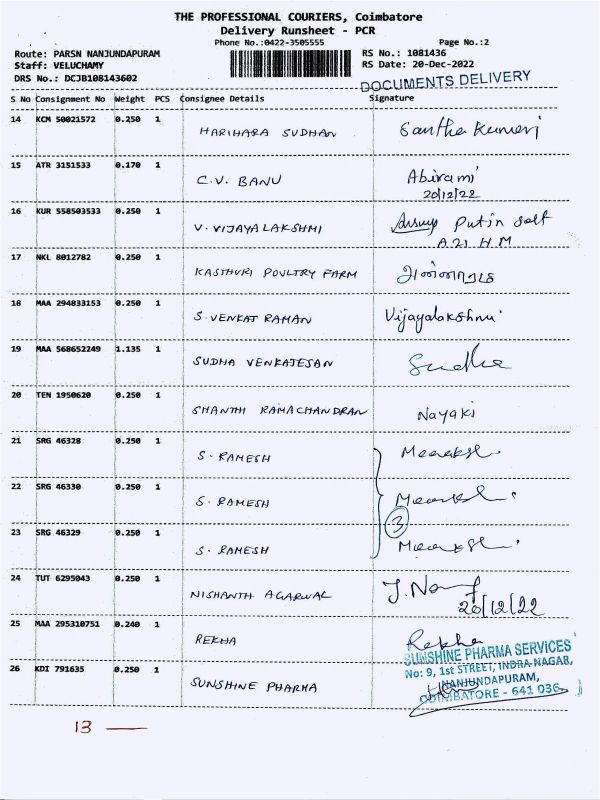 THE PROFESSIONAL COURIERS, Coimbatore
Delivery Runsheet - PCR
Phone No.:0422-3505555 Page No.:2
Route: PARSN NANJUNDAPURAM RS No.: 1081436
Staff: VELUCHAMY RS Date: 20-Dec-2022
DRS No.: DCJB108143602 DOCUMENTS DELIVERY
S No Consignment No Weight PCS Consignee Details Signature
14 KCM 50021572 0.250 1 HARIHARA SUDHAN Santha Kumari
15 ATR 3151533 0.170 1 C.V. BANU Abirami
20/12/22
16 KUR 558503533 0.250 1 V. VIJAYALAKSHMI Putin self
A21 H.M
17 NKL 8012782 0.250 1 KASTHURI POULTRY FARM
18 MAA 294833153 0.250 1 S. VENKAT RAMAN Vijayalakshmi
19 MAA 568652249 1.135 1 SUDHA VENKATESAN Sudha
20 TEN 1950620 0.250 1 SHANTHI RAMACHANDRAN Nayaki
21 SRG 46328 0.250 1 S. RAMESH
22 SRG 46330 0.250 1 S. RAMESH
3
23 SRG 46329 0.250 1 S. RAMESH
24 TUT 6295043 0.250 1 NISHANTH AGARWAL
20/12/22
25 MAA 295310751 0.240 1 REKHA Rekha
26 KDI 791635 0.250 1 SUNSHINE PHARMA
SUNSHINE PHARMA SERVICES
No: 9, 1st STREET, INDRA NAGAR,
NANJUNDAPURAM,
COIMBATORE - 641 036
13 —